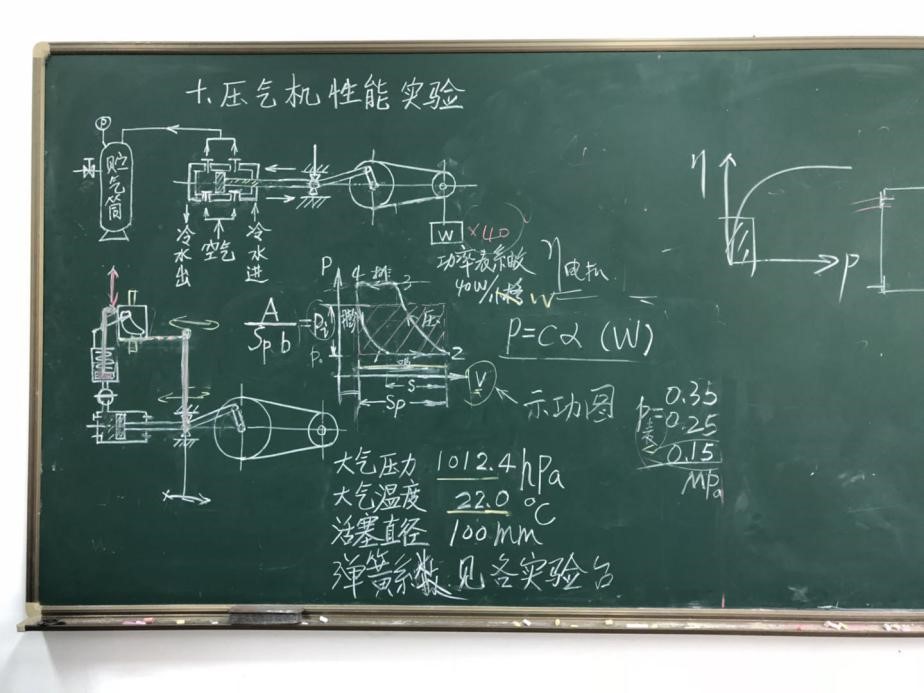 十、压气机性能实验
P
贮气筒
冷水出
空气
冷水进
W ×40
功率表系数
40W/小格
η电机
η
P
P
4 排 3
A
Sp b
= Pi
P₀
膨
压
1
2
吸
S
Sp
V
P=Cα (W)
示功图
P表=
0.35
0.25
0.15
MPa
大气压力 1012.4 hPa
大气温度 22.0 ℃
活塞直径 100mm
弹簧系数见各实验台